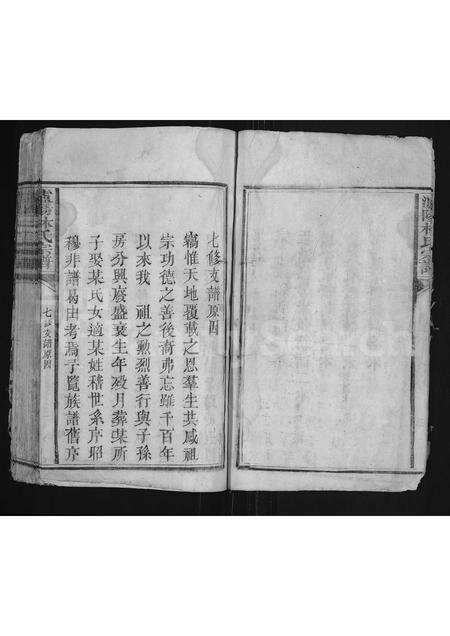 七修支譜原因
竊惟天地覆載之恩羣生共咸祖
宗功德之善後裔弗忘雖千百年
以來我　祖之勲烈善行與子孫
房分興廢盛衰生年殁月葬某所
子娶某氏女適某姓稽世系序昭
穆非譜曷由考焉予覽族譜舊序
林氏宗譜
七修支譜原因
林氏宗譜